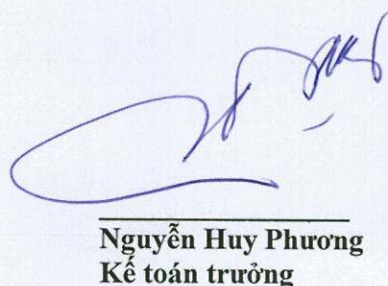 Nguyễn Huy Phương
Kế toán trưởng